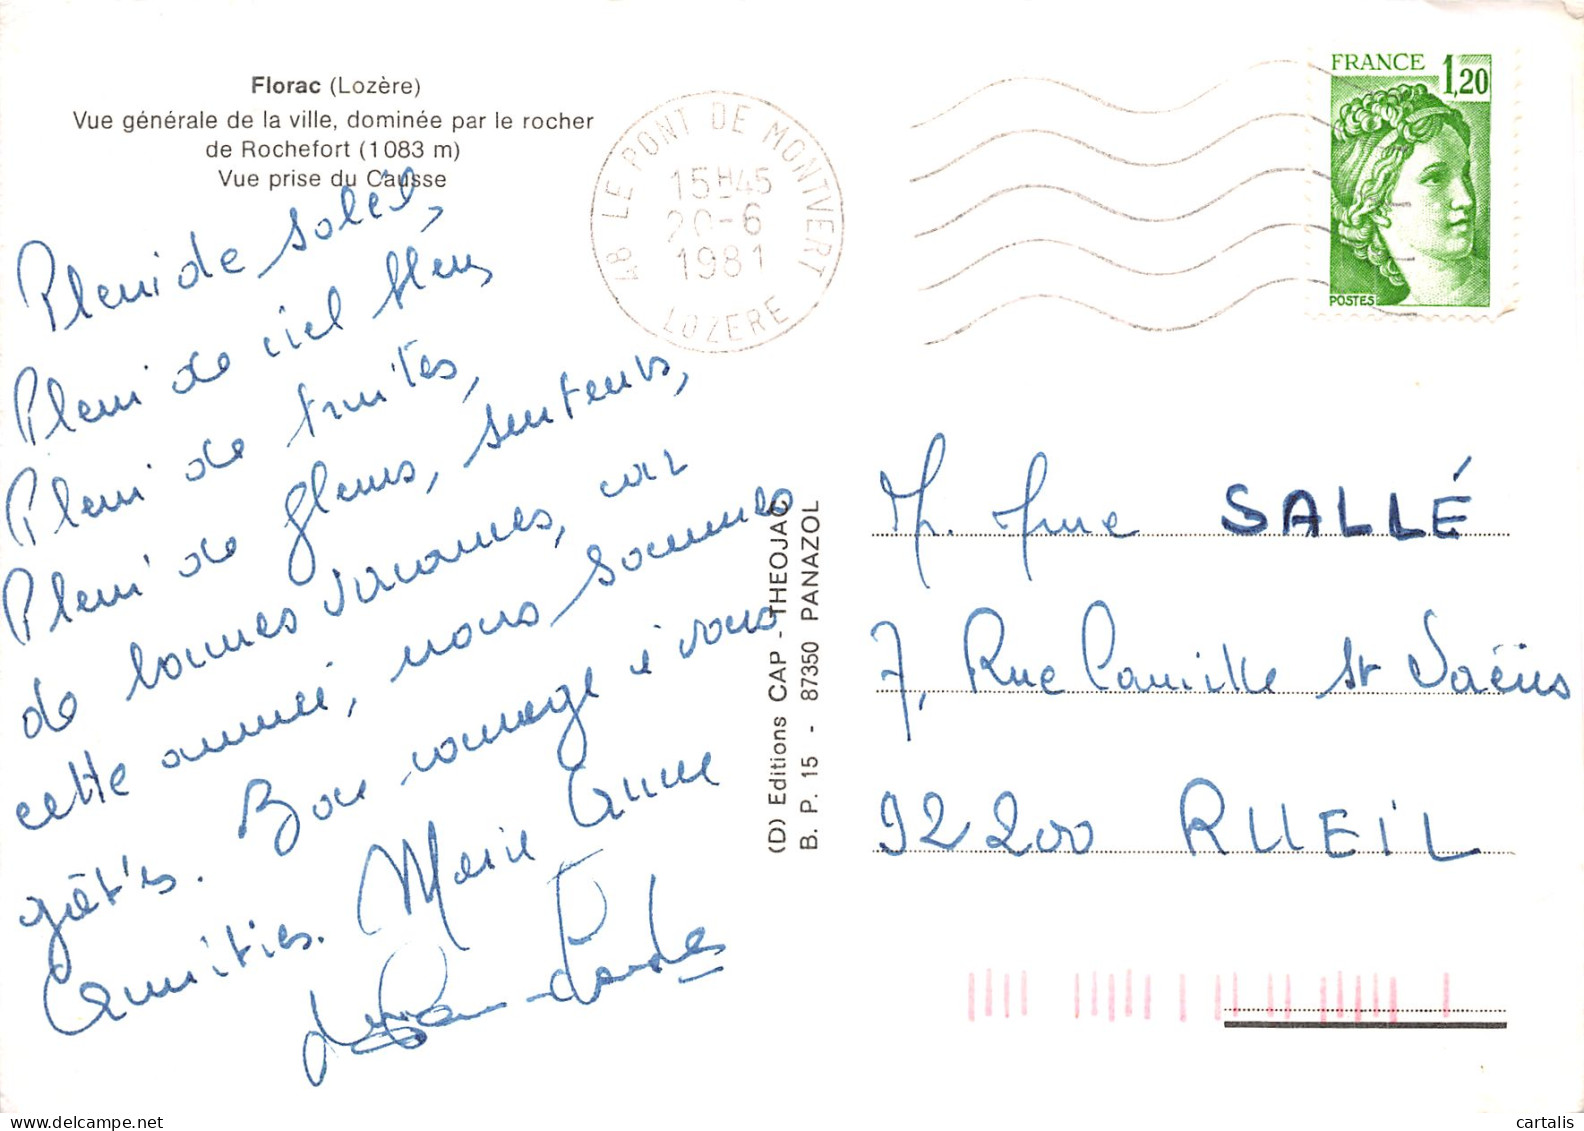 Florac (Lozère)
Vue générale de la ville, dominée par le rocher
de Rochefort (1083 m)
Vue prise du Causse
48 LE PONT DE MONTVERT
15H45
20-6
1981
LOZERE
FRANCE 1,20
POSTES
Plein de soleil,
Plein de ciel bleu
Plein de truites,
Plein de fleurs, senteurs,
de bonnes vacances, car
cette année, nous sommes
gâtés. Bon courage à vous
Amitiés. Marie Anne
Jean-Claude
(D) Editions CAP - THEOJAC
B. P. 15 - 87350 PANAZOL
M. Mme SALLÉ
7, Rue Camille St Saëns
92200 RUEIL
delcampe.net
cartalis